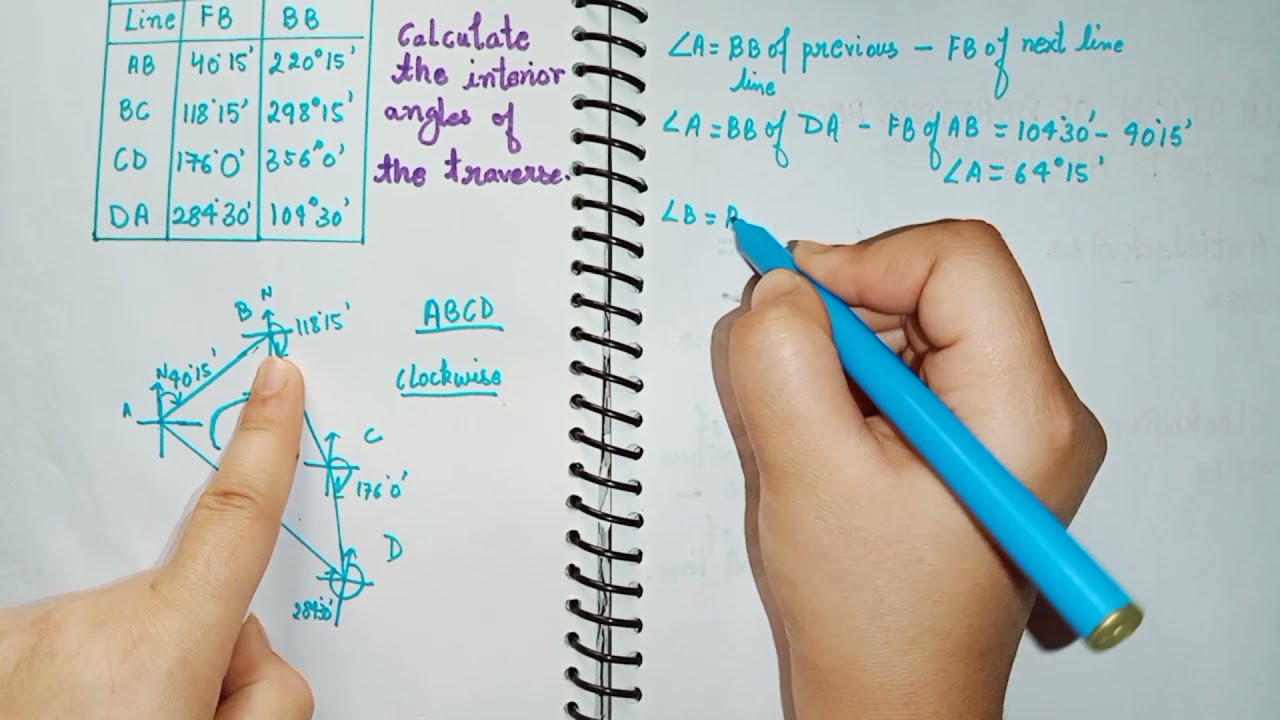 Line FB BB
AB 40°15' 220°15'
BC 118°15' 298°15'
CD 176°0' 356°0'
DA 284°30' 104°30'
Calculate
the interior
angles of
the traverse.
B N
118°15'
N 40°15'
A
C
176°0'
D
284°30'
ABCD
Clockwise
∠A = BB of previous - FB of next line
line
∠A = BB of DA - FB of AB = 104°30' - 40°15'
∠A = 64°15'
∠B =